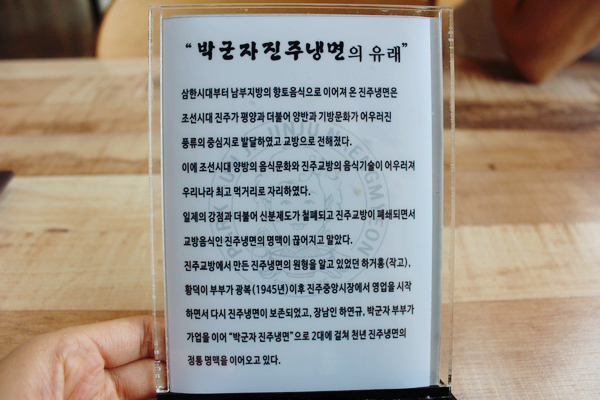 “박군자진주냉면의 유래”
삼한시대부터 남부지방의 향토음식으로 이어져 온 진주냉면은
조선시대 진주가 평양과 더불어 양반과 기방문화가 어우러진
풍류의 중심지로 발달하였고 교방으로 전해졌다.
이에 조선시대 양방의 음식문화와 진주교방의 음식기술이 어우러져
우리나라 최고 먹거리로 자리하였다.
일제의 강점과 더불어 신분제도가 철폐되고 진주교방이 폐쇄되면서
교방음식인 진주냉면의 명맥이 끊어지고 말았다.
진주교방에서 만든 진주냉면의 원형을 알고 있었던 하거홍(작고),
황덕이 부부가 광복(1945년)이후 진주중앙시장에서 영업을 시작
하면서 다시 진주냉면이 보존되었고, 장남인 하연규, 박군자 부부가
가업을 이어 “박군자 진주냉면”으로 2대에 걸쳐 천년 진주냉면의
정통 명맥을 이어오고 있다.